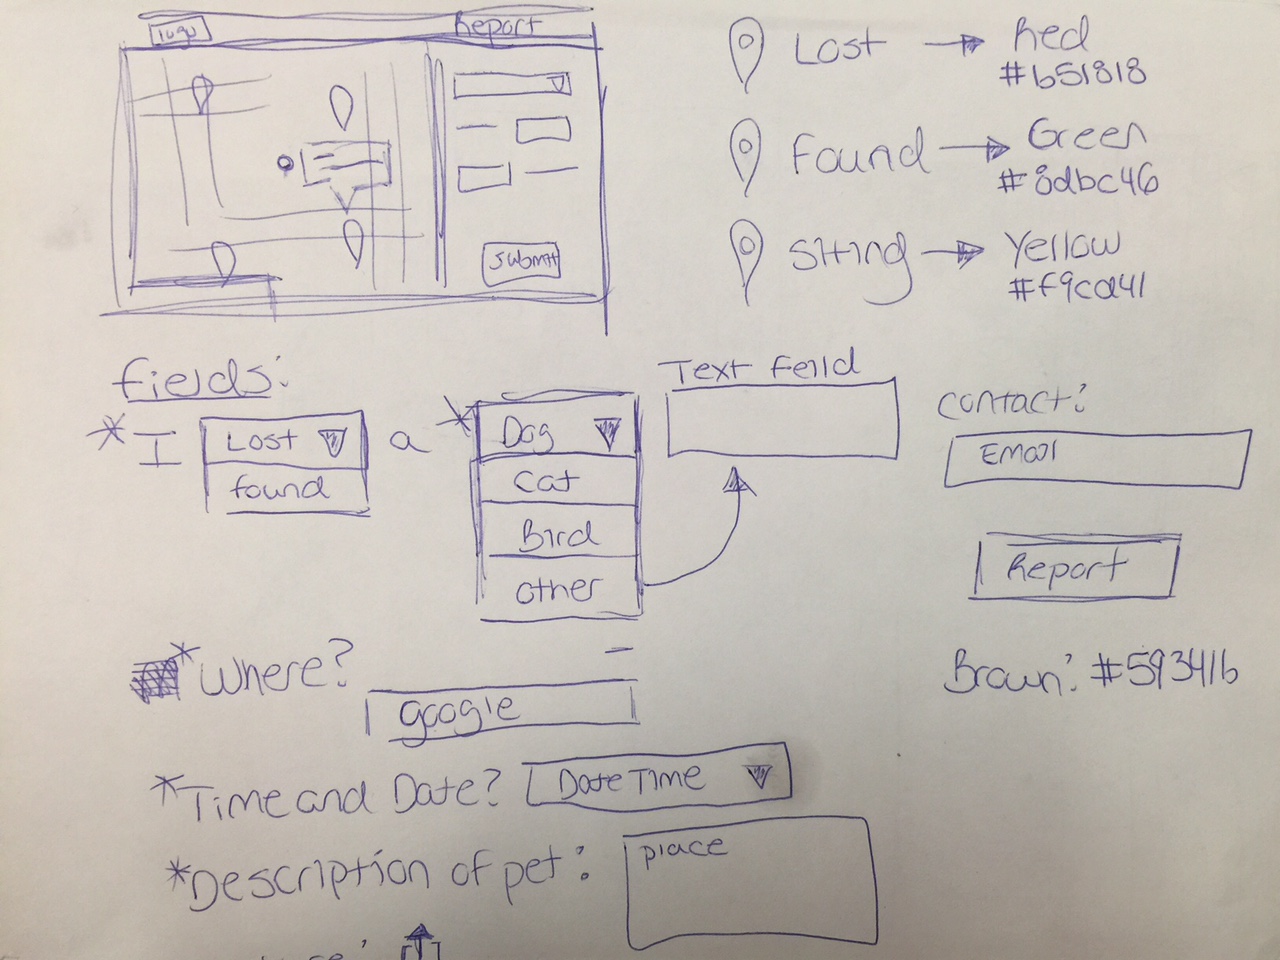 logo
Report
submit
Lost → Red
#b51818
Found → Green
#8dbc46
Siting → Yellow
#f9cd41
Fields:
* I Lost a * Dog
found
Cat
Bird
other
Text Feild
contact:
Email
Report
Brown: #59341b
*Where?
google
*Time and Date? Date Time
*Description of pet: place